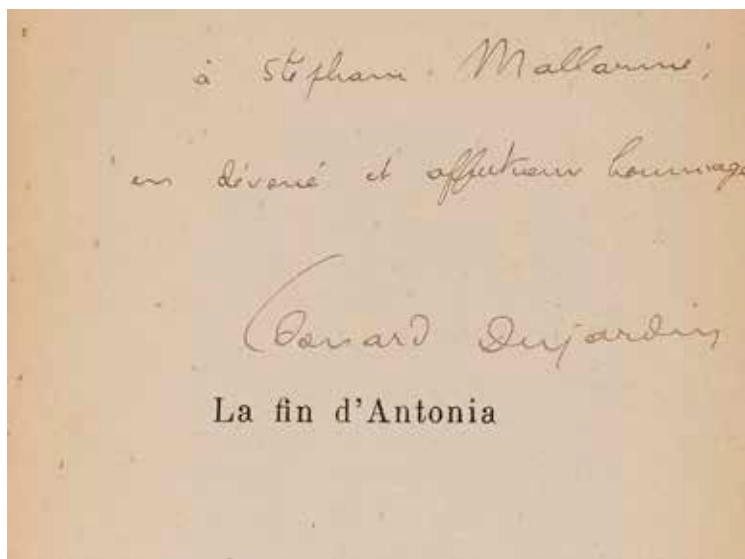 à Stéphane Mallarmé,
en dévoué et affectueux hommage
Édouard Dujardin
La fin d'Antonia